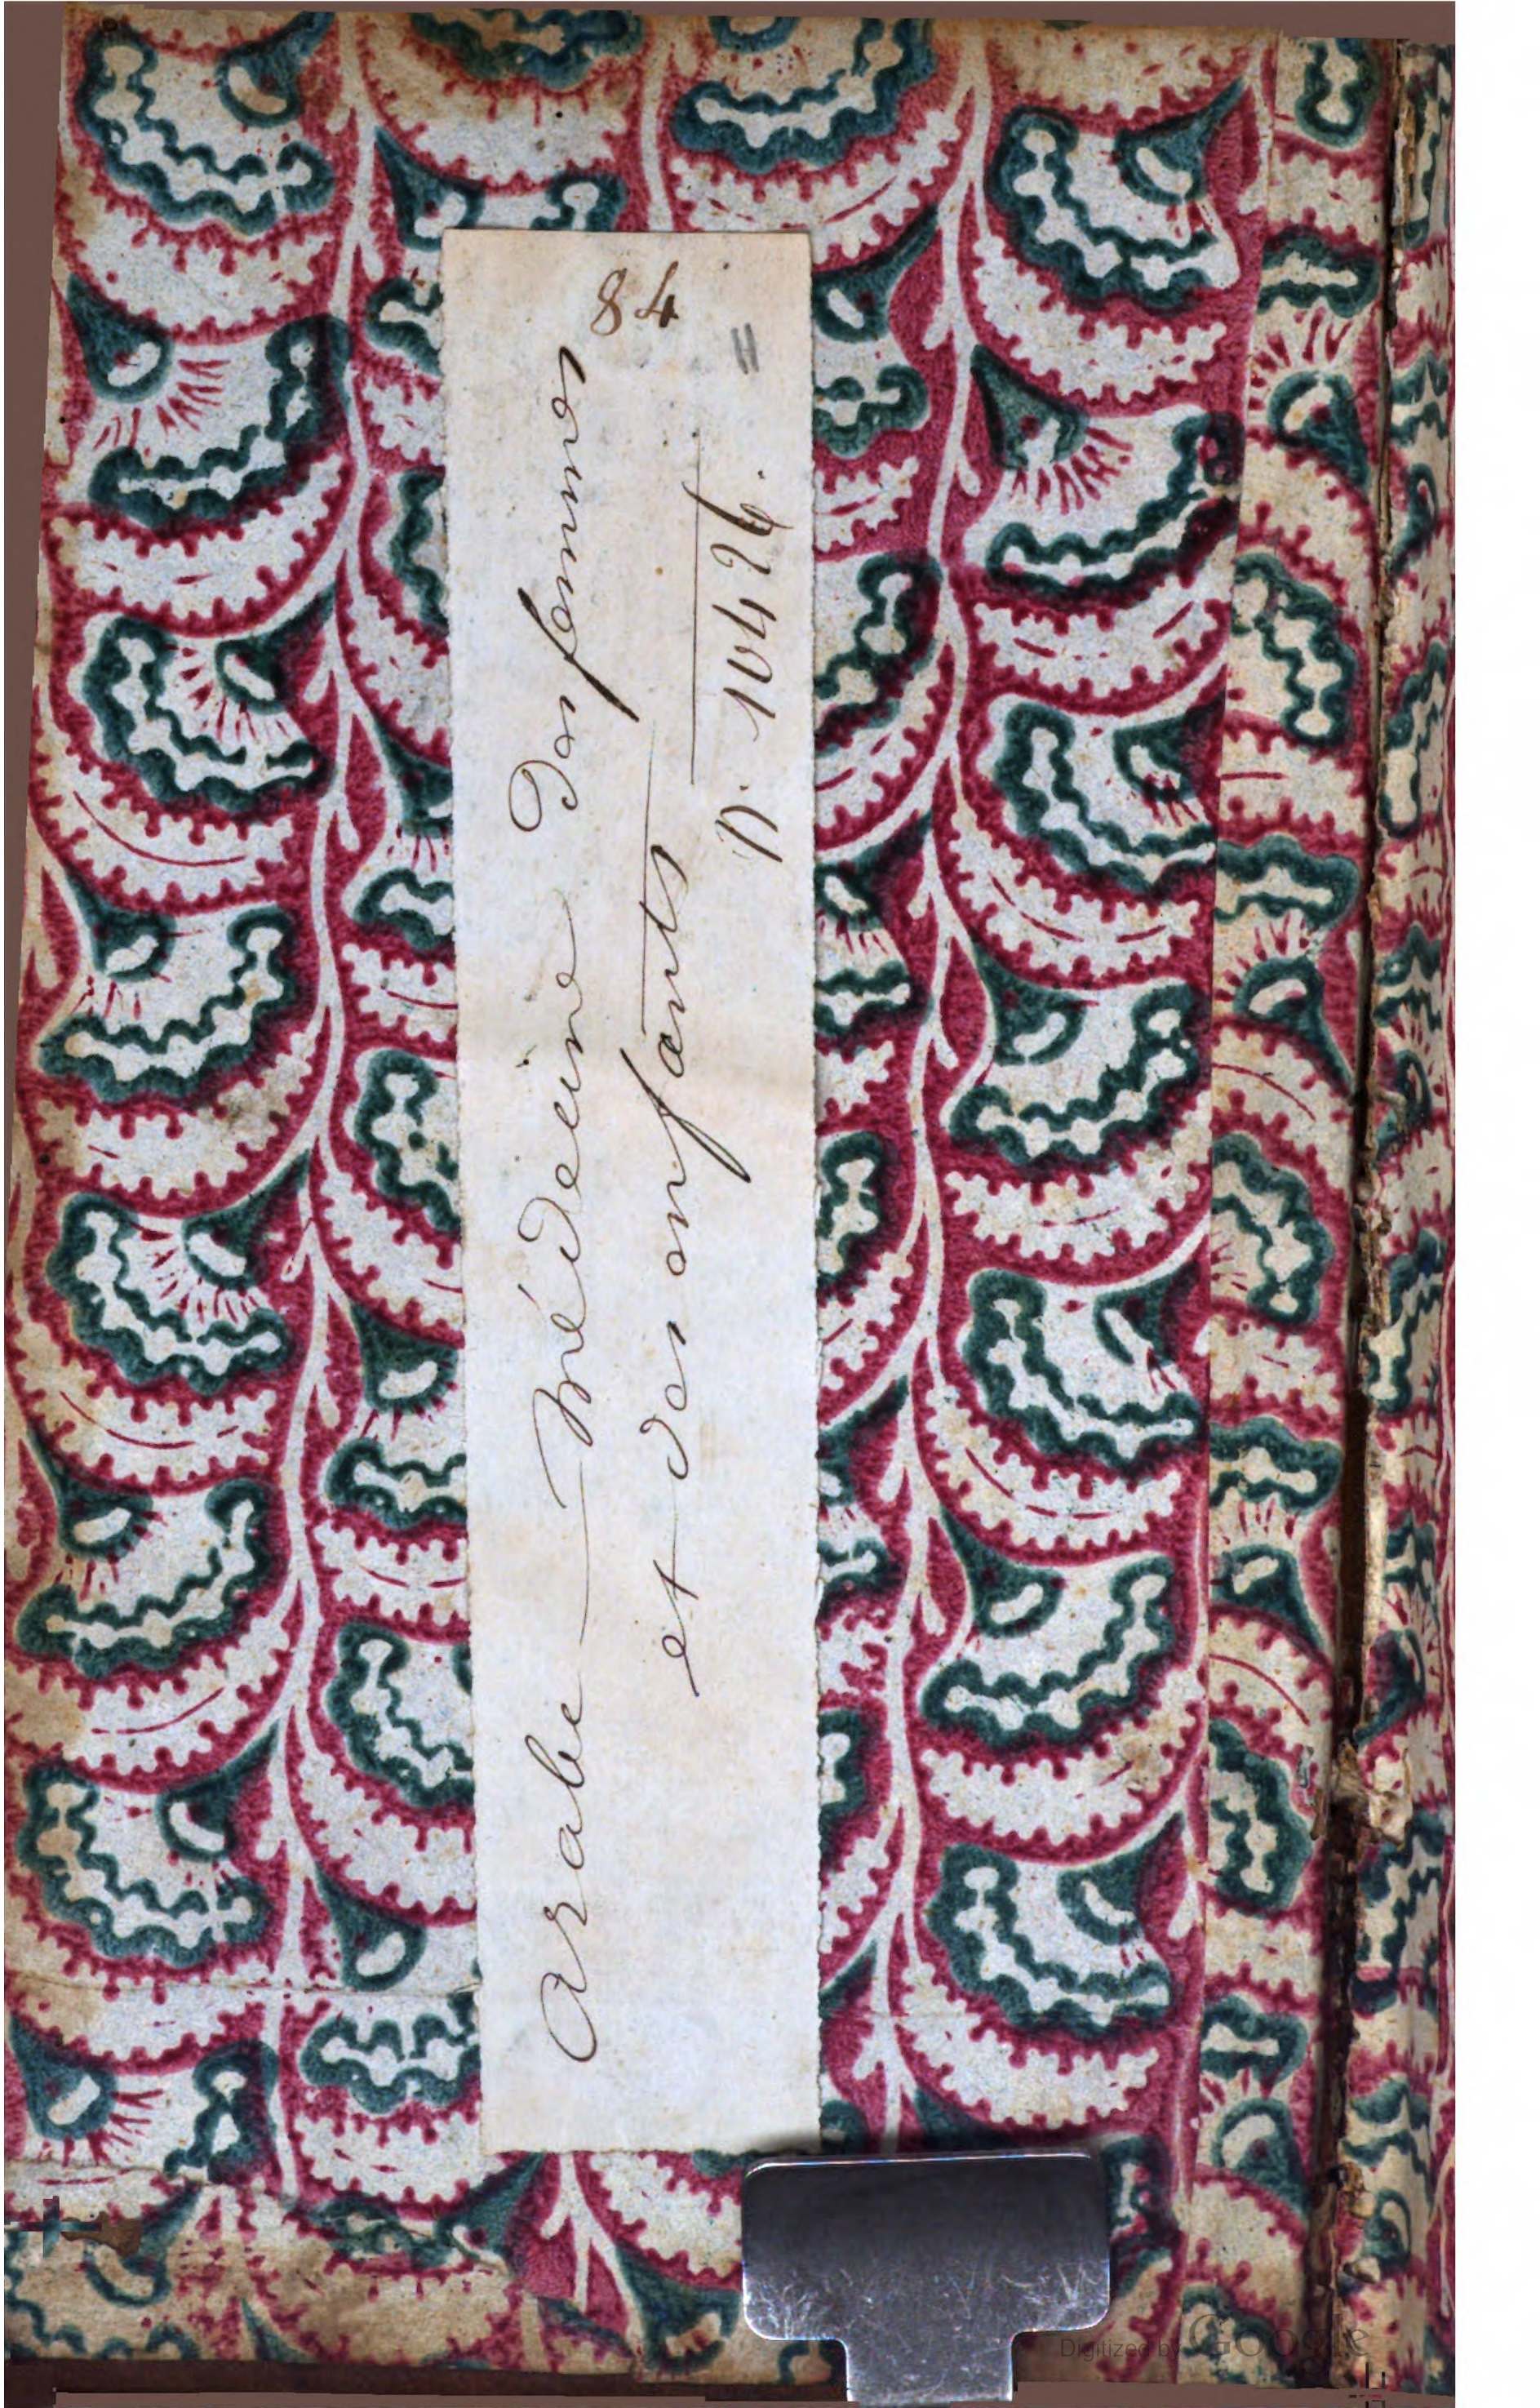 84
"
Arabe — Médecine des femmes
et des enfants
n. 10426.
Digitized by Google